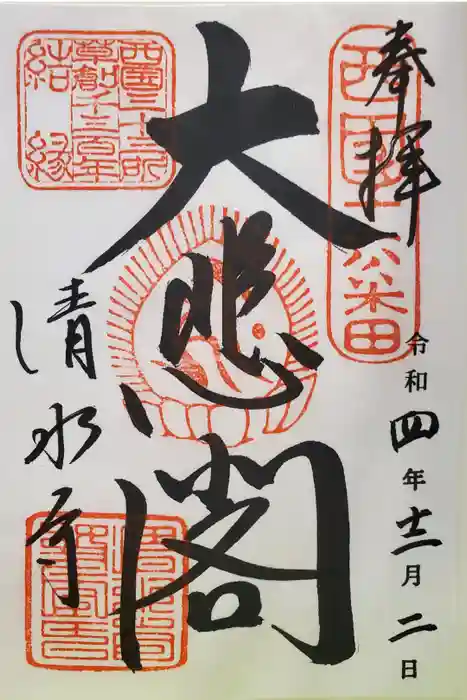 奉拝
西国十六番
令和四年十二月二日
大悲閣
西国三十三所
草創千三百年
結縁
清水寺